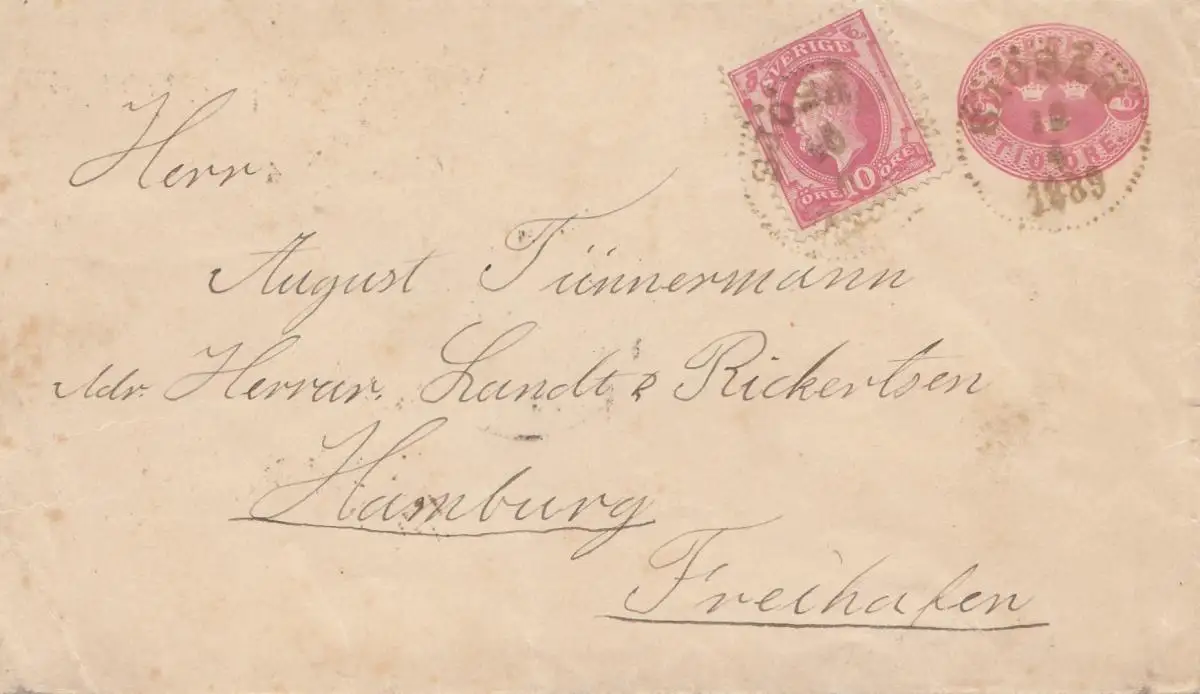 SVERIGE
10
ÖRE ÖRE
TIO ÖRE
1889
Herr
August Tünnermann
Adr. Herrar. Landt & Rickertsen
Hamburg
Freihafen